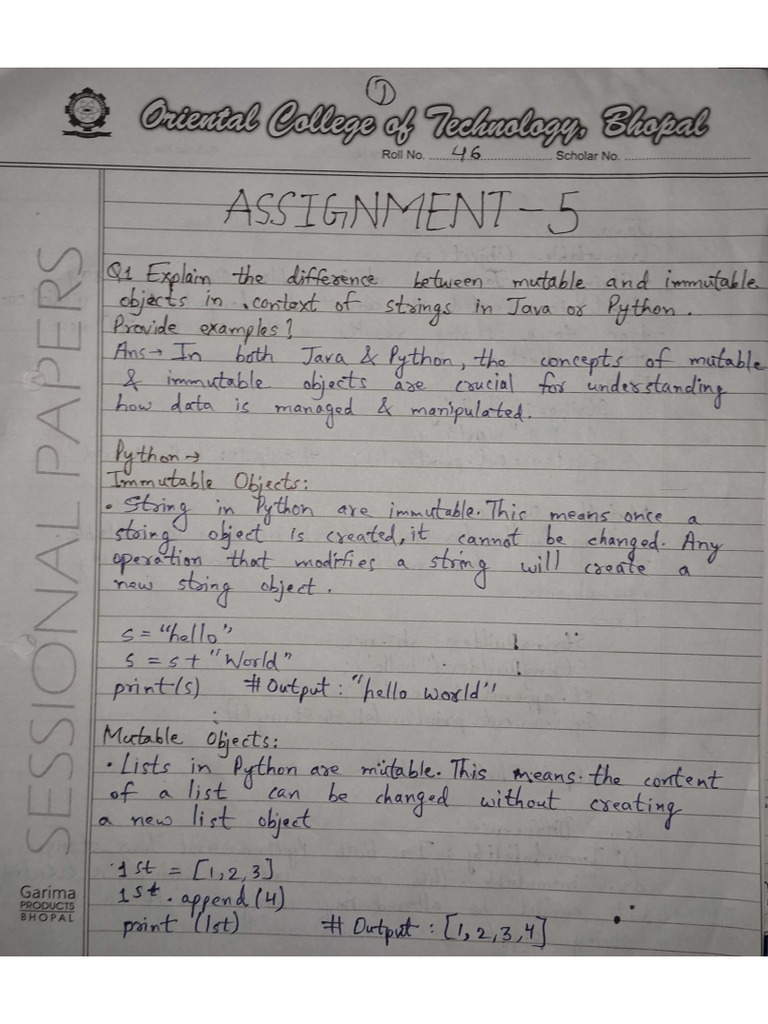 1
Oriental College of Technology, Bhopal
Roll No. ......46.............................. Scholar No. ........................................
ASSIGNMENT - 5
SESSIONAL PAPERS
Q1 Explain the difference between mutable and immutable
objects in context of strings in Java or Python.
Provide examples?
Ans→ In both Java & Python, the concepts of mutable
& immutable objects are crucial for understanding
how data is managed & manipulated.
Python →
Immutable Objects:
• String in Python are immutable. This means once a
string object is created, it cannot be changed. Any
operation that modifies a string will create a
new string object.
s = "hello"
s = s + "World"
print(s) # Output : "hello world"
Mutable Objects:
• Lists in Python are mutable. This means the content
of a list can be changed without creating
a new list object
1st = [1,2,3]
1st . append(4)
print (1st) # Output : [1,2,3,4]
Garima
PRODUCTS
BHOPAL